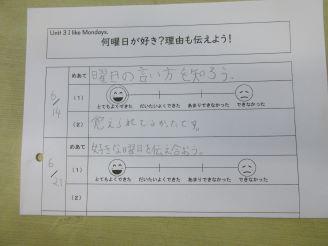 Unit 3 I like Mondays.
何曜日が好き?理由も伝えよう!
めあて
曜日の言い方を知ろう。
6/14
(1)
とてもよくできた だいたいよくできた あまりできなかった できなかった
(2)
覚えられてよかったです。
めあて
好きな曜日を伝え合おう。
6/21
(1)
とてもよくできた だいたいよくできた あまりできなかった できなかった
(2)